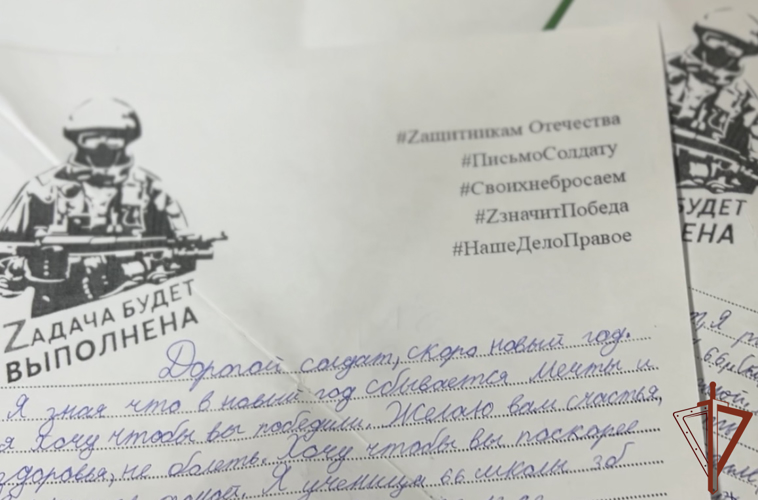 #Zащитникам Отечества
#ПисьмоСолдату
#Своихнебросаем
#ZзначитПобеда
#НашеДелоПравое
ZАДАЧА БУДЕТ
ВЫПОЛНЕНА
Дорогой солдат, скоро новый год.
Я знаю что в новый год сбывается мечты и
я хочу чтобы вы победили. Желаю вам счастья,
здоровья, не болеть. Хочу чтобы вы поскорее
Я ученица 66 школы 3об
БУДЕТ
ЕНА